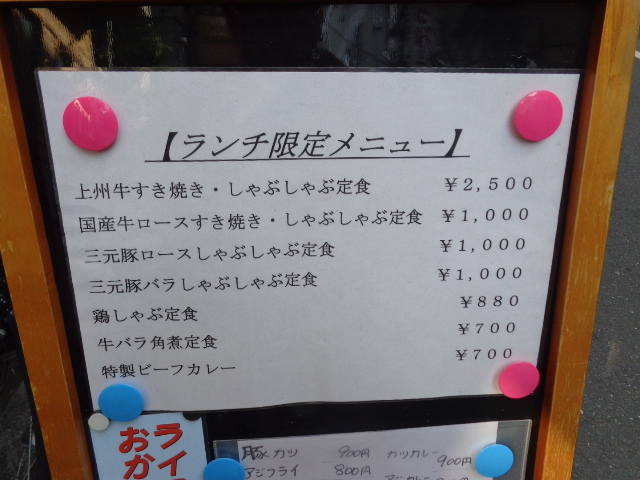 【ランチ限定メニュー】
上州牛すき焼き・しゃぶしゃぶ定食 ￥2,500
国産牛ロースすき焼き・しゃぶしゃぶ定食 ￥1,000
三元豚ロースしゃぶしゃぶ定食 ￥1,000
三元豚バラしゃぶしゃぶ定食 ￥1,000
鶏しゃぶ定食 ￥880
牛バラ角煮定食 ￥700
特製ビーフカレー ￥700
ライ
おか
豚カツ 900円 カツカレー 900円
アジフライ 800円